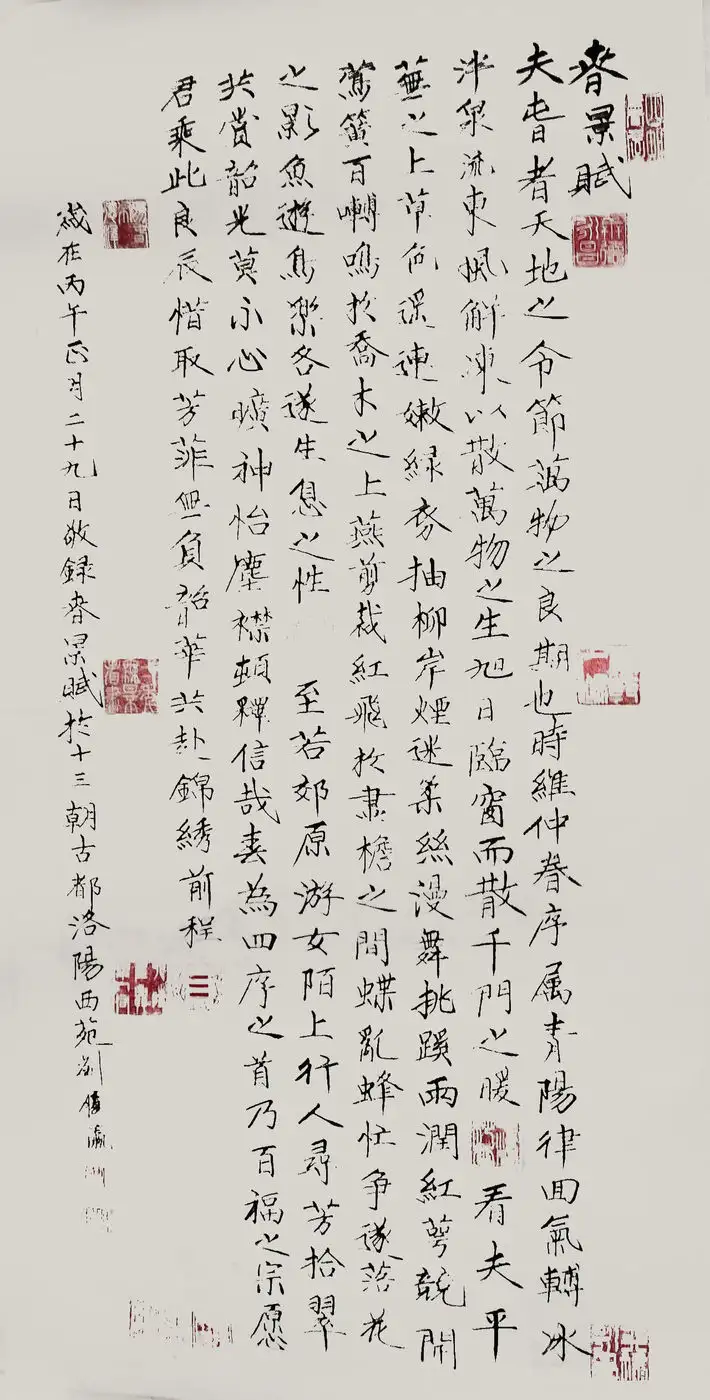 春景賦
夫春者天地之令節萬物之良期也時維仲春序属青陽律回氣轉冰
泮泉流東風解凍以散萬物之生旭日臨窗而散千門之暖 看夫平
蕪之上草色遥連嫩緑夯抽柳岸煙迷柔絲漫舞桃蹊雨潤紅萼競開
鶯簧百囀鳴於喬木之上燕剪裁紅飛於肃檐之間蝶亂蜂忙争逐落花
之影魚遊鳥樂各遂生息之性 至若郊原游女陌上行人尋芳拾翠
共賞韶光莫不心曠神怡塵襟頓釋信哉春為四序之首乃百福之宗愿
君乘此良辰惜取芳菲無負韶華共赴錦綉前程
歲在丙午正月二十九日敬録春景賦於十三朝古都洛陽西苑劉